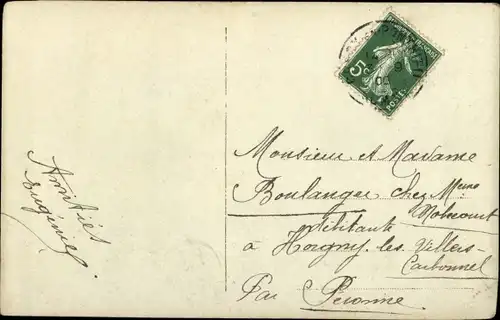 Amitiés
Eugénie
5c
POSTES
Monsieur et Madame
Boulanger chez Mme
Nobecourt
débitante
à Horgny-les-Villers-
Carbonnel
Par Péronne